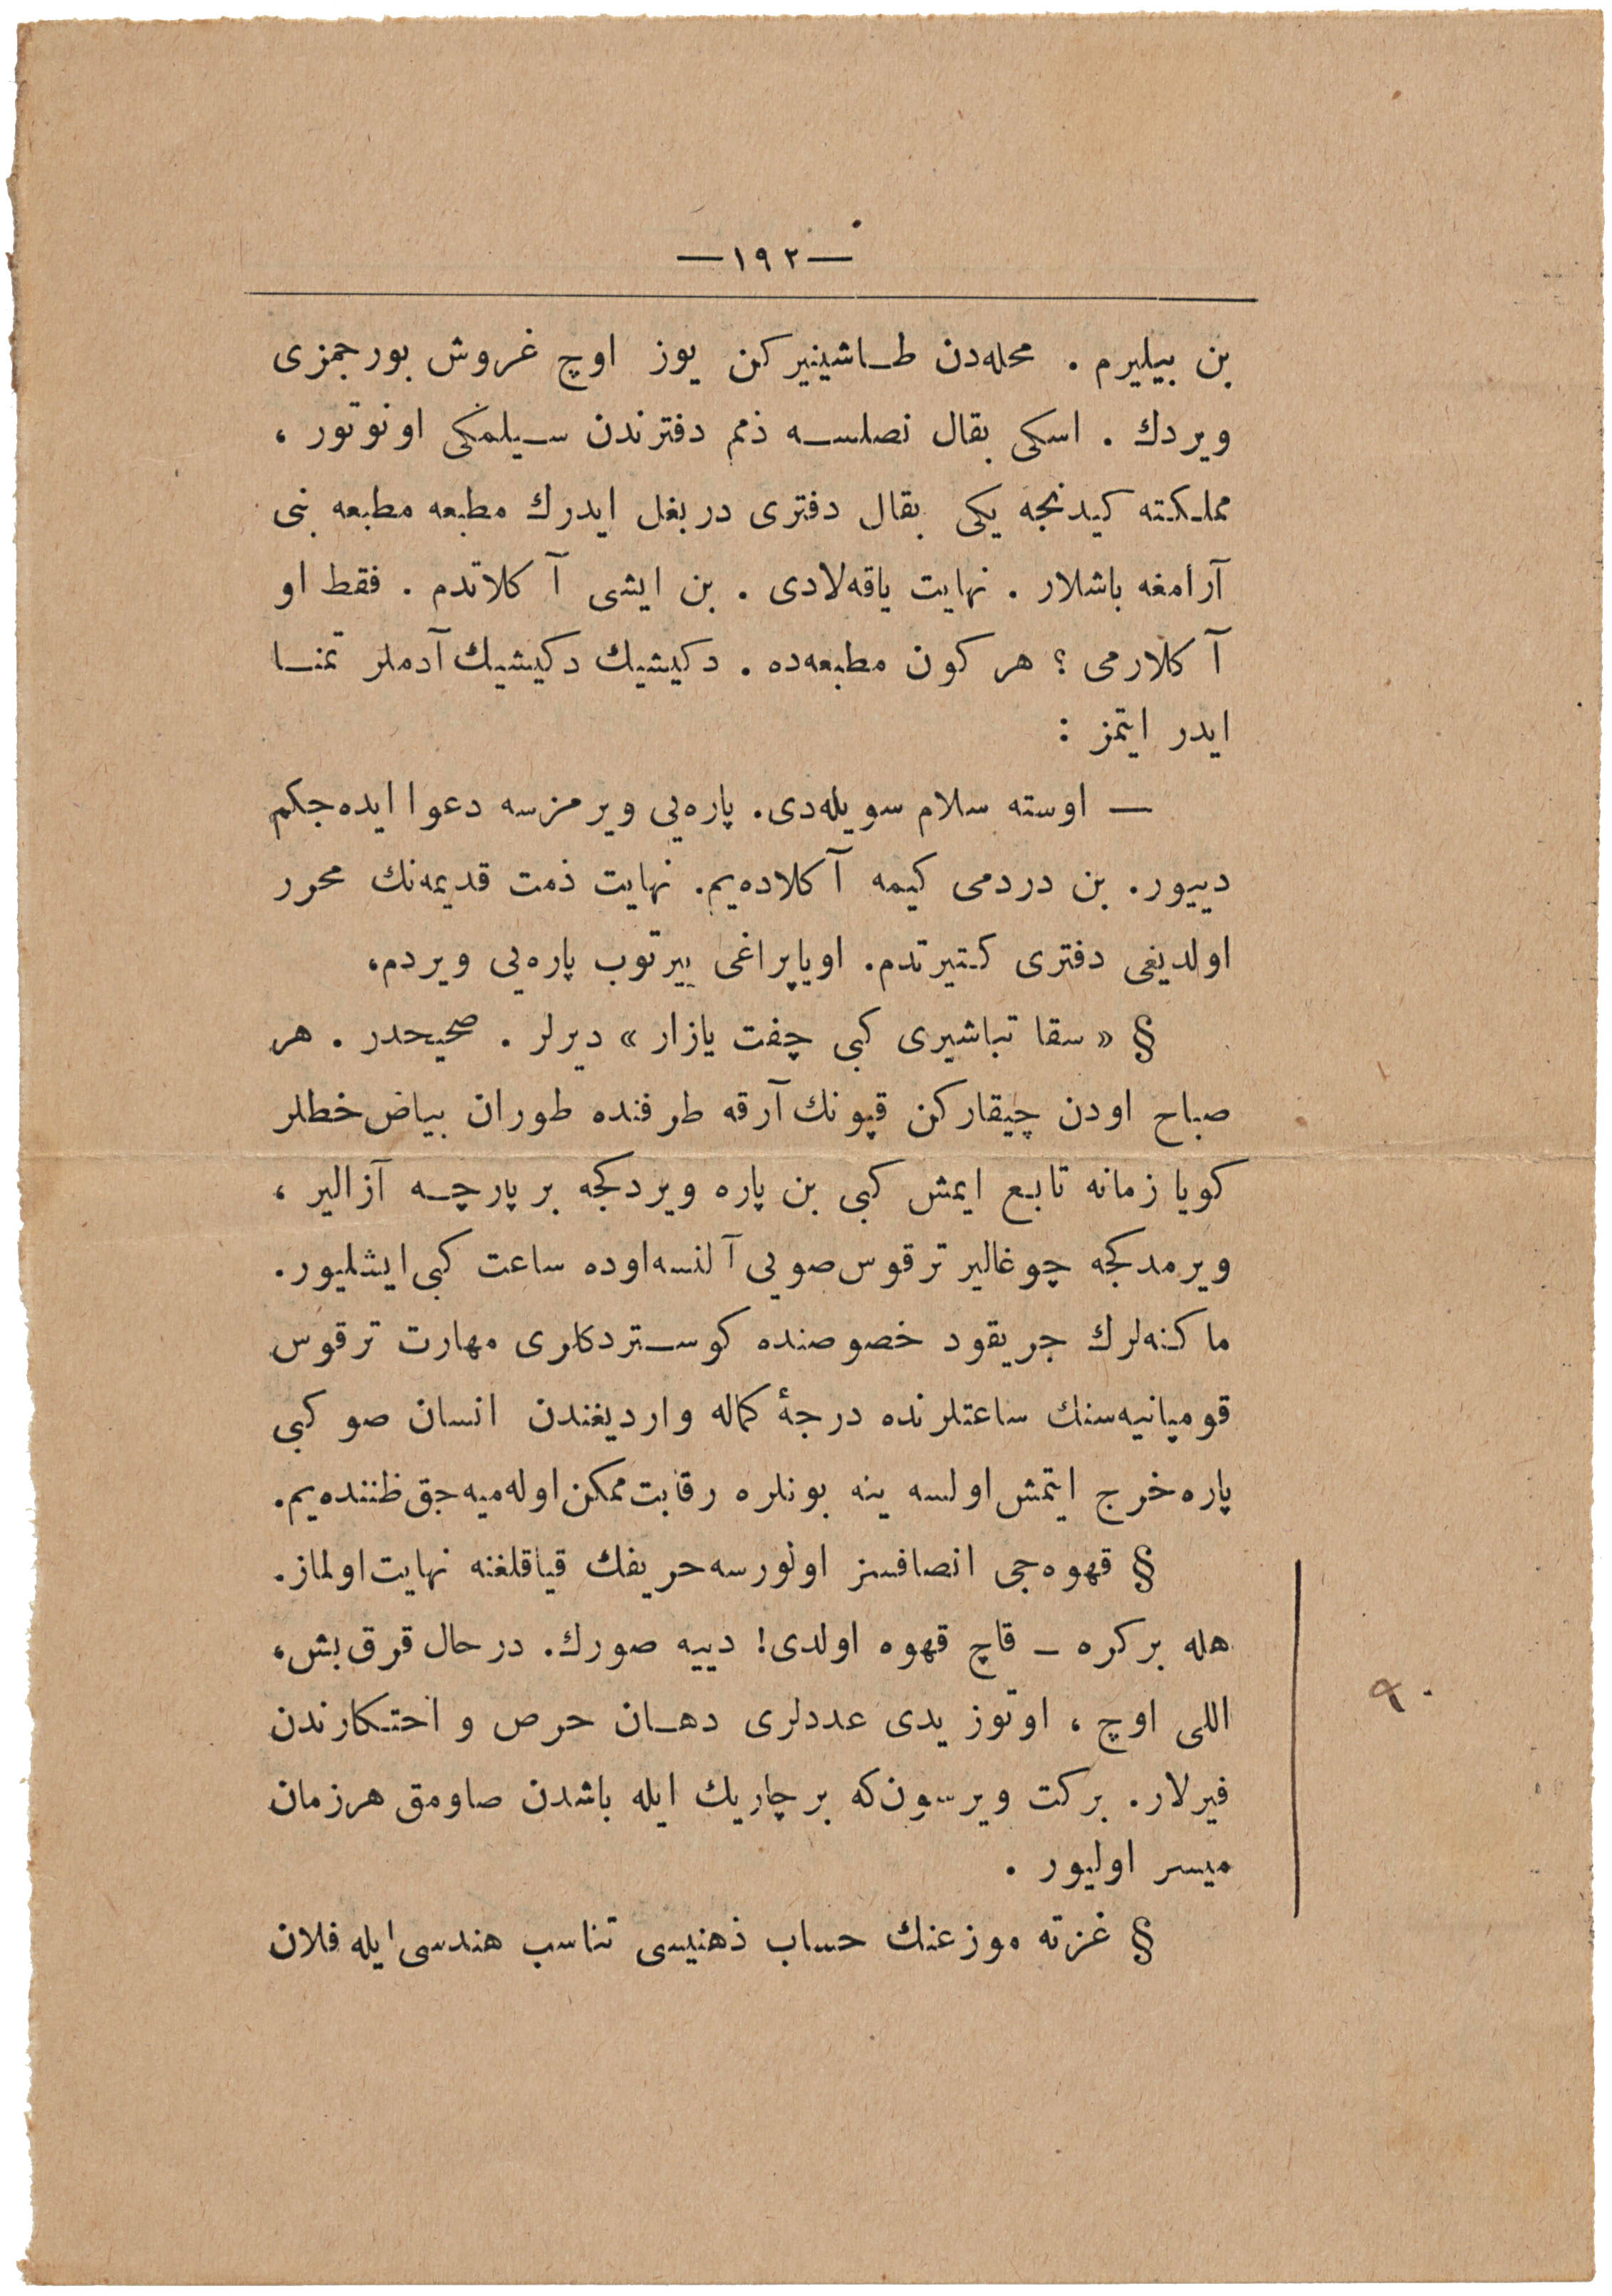 —١٩٢—
بن بيليرم . محله‌دن طاشينيركن يوز اوچ غروش بورجمزى
ويردك . اسكى بقال نصلسه ذمم دفترندن سيلمكى اونوتور ،
مملكته كيدنجه يكى بقال دفترى دربغل ايدرك مطبعه مطبعه بنى
آرامغه باشلار . نهايت ياقه‌لادى . بن ايشى آكلاتدم . فقط او
آكلارمى ؟ هر كون مطبعه‌ده . دكيشيك دكيشيك آدملر تمنا
ايدر ايتمز :
— اوسته سلام سويله‌دى. پاره‌يى ويرمزسه دعوا ايده‌جكم
دييور. بن دردمى كيمه آكلاده‌يم. نهايت ذمت قديمه‌نك محرر
اولديغى دفترى كتيرتدم. اوياپراغى ييرتوب پاره‌يى ويردم،
§ « سقا تباشيرى كبى چفت يازار » ديرلر . صحيحدر . هر
صباح اودن چيقاركن قپونك آرقه طرفنده طوران بياض خطلر
كويا زمانه تابع ايمش كبى بن پاره ويردكجه بر پارچه آزالير ،
ويرمدكجه چوغالير ترقوس صويى آلنسه اوده ساعت كبى ايشليور.
ماكنه‌لرك جريقود خصوصنده كوستردكلرى مهارت ترقوس
قومپانيه‌سنك ساعتلرنده درجۀ كماله وارديغندن انسان صو كبى
پاره خرج ايتمش اولسه ينه بونلره رقابت ممكن اوله‌ميه‌جق ظننده‌يم.
§ قهوه‌جى انصافسز اولورسه حريفك قياقلغنه نهايت اولماز.
هله بر كره — قاچ قهوه اولدى! دييه صورك. درحال قرق بش،
اللى اوچ ، اوتوز يدى عددلرى دهان حرص و احتكارندن
فيرلار. بركت ويرسون كه بر چاريك ايله باشدن صاومق هرزمان
ميسر اوليور .
٩٠
§ غزته موزعنك حساب ذهنيسى تناسب هندسى ايله فلان